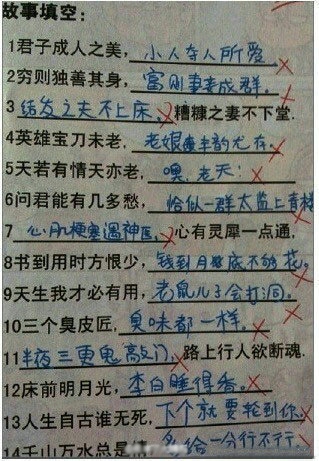 故事填空:
1君子成人之美, 小人夺人所爱
2穷则独善其身, 富则妻妾成群.
3 结发之夫不上床, 糟糠之妻不下堂.
4英雄宝刀未老, 老娘风韵尤存.
5天若有情天亦老, 噢,老天!
6问君能有几多愁, 恰似一群太监上青楼
7 心肌梗塞遇神医, 心有灵犀一点通,
8书到用时方恨少, 钱到月底不够花.
9天生我才必有用, 老鼠儿子会打洞.
10三个臭皮匠, 臭味都一样.
11半夜三更鬼敲门, 路上行人欲断魂.
12床前明月光, 李白睡得香.
13人生自古谁无死, 下个就要轮到你.
14千山万水总是情 多给一分行不行.